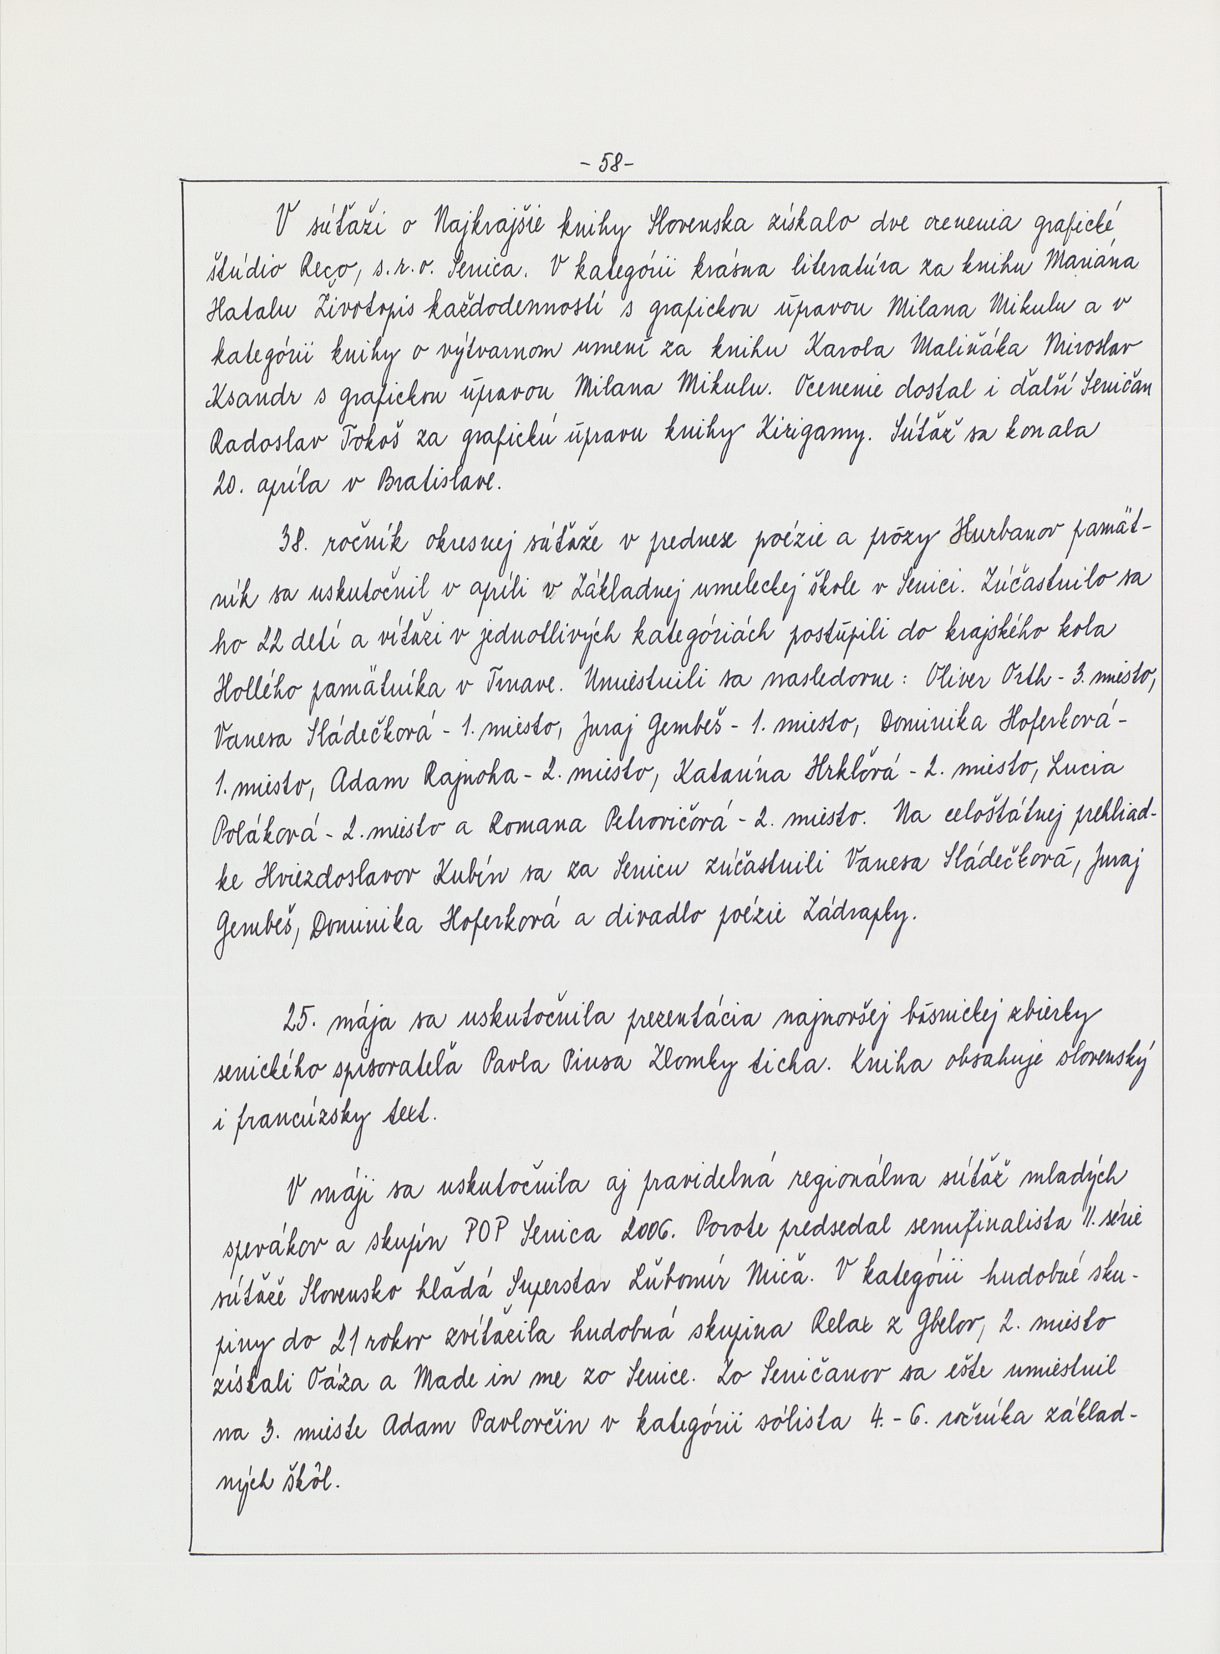 - 58 -
V súťaži o Najkrajšie knihy Slovenska získalo dve ocenenia grafické
štúdio Reco, s.r.o. Senica. V kategórii krásna literatúra za knihu Mariána
Hatalu Životopis každodenností s grafickou úpravou Milana Mikulu a v
kategórii knihy o výtvarnom umení za knihu Karola Maliňáka Miroslav
Ksandr s grafickou úpravou Milana Mikulu. Ocenenie dostal i ďalší Seničan
Radoslav Tokoš za grafickú úpravu knihy Kirigamy. Súťaž sa konala
20. apríla v Bratislave.
38. ročník okresnej súťaže v prednese poézie a prózy Hurbanov pamät-
ník sa uskutočnil v apríli v Základnej umeleckej škole v Senici. Zúčastnilo sa
ho 22 detí a víťazi v jednotlivých kategóriách postúpili do krajského kola
Hollého pamätníka v Trnave. Umiestnili sa nasledovne: Oliver Orth - 3. miesto,
Vanesa Sládečková - 1. miesto, Juraj Gembeš - 1. miesto, Dominika Hoferková -
1. miesto, Adam Rajnoha - 2. miesto, Katarína Hrklová - 2. miesto, Lucia
Poláková - 2. miesto a Romana Petrovičová - 2. miesto. Na celoštátnej prehliad-
ke Hviezdoslavov Kubín sa za Senicu zúčastnili Vanesa Sládečková, Juraj
Gembeš, Dominika Hoferková a divadlo poézie Zádrapky.
25. mája sa uskutočnila prezentácia najnovšej básnickej zbierky
senického spisovateľa Pavla Piusa Zlomky ticha. Kniha obsahuje slovenský
i francúzsky text.
V máji sa uskutočnila aj pravidelná regionálna súťaž mladých
spevákov a skupín POP Senica 2006. Porote predsedal semifinalista II. série
súťaže Slovensko hľadá Superstar Ľubomír Miča. V kategórii hudobné sku-
piny do 21 rokov zvíťazila hudobná skupina Relax z Gbelov, 2. miesto
získali Oáza a Made in me zo Senice. Zo Seničanov sa ešte umiestnil
na 3. mieste Adam Pavlovčin v kategórii sólista 4. - 6. ročníka základ-
ných škôl.